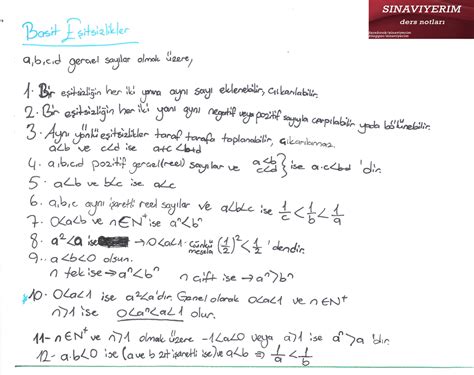 SINAVİYERİM
ders notları
Basit Eşitsizlikler
a,b,c,d gerçel sayılar olmak üzere,
1. Bir eşitsizliğin her iki yanına aynı sayı eklenebilir, çıkarılabilir.
2. Bir eşitsizliğin her iki yanı aynı negatif veya pozitif sayıyla çarpılabilir yada bölünebilir.
3. Aynı yönlü eşitsizlikler taraf tarafa toplanabilir, çıkarılamaz.
a<b ve c<d ise a+c<b+d
4. a,b,c,d pozitif gerçel(reel) sayılar ve a<b c<d } ise a.c<b.d 'dir.
5. a<b ve b<c ise a<c
6. a,b,c aynı işaretli reel sayılar ve a<b<c ise 1/c<1/b<1/a
7. 0<a<b ve n∈N⁺ ise aⁿ<bⁿ
8. a²<a ise →0<a<1. Çünkü mesela (1/2)²<1/2 'dendir.
9. a<b<0 olsun.
n tek ise→aⁿ<bⁿ n çift ise→aⁿ>bⁿ
10. 0<a<1 ise a²<a'dır. Genel olarak 0<a<1 ve n∈N⁺
n>1 ise 0<aⁿ<a<1 olur.
11- n∈N⁺ ve n>1 olmak üzere -1<a<0 veya a>1 ise aⁿ>a 'dır.
12- a.b<0 ise (a ve b zıt işaretli ise) ve a<b ⇒ 1/a<1/b